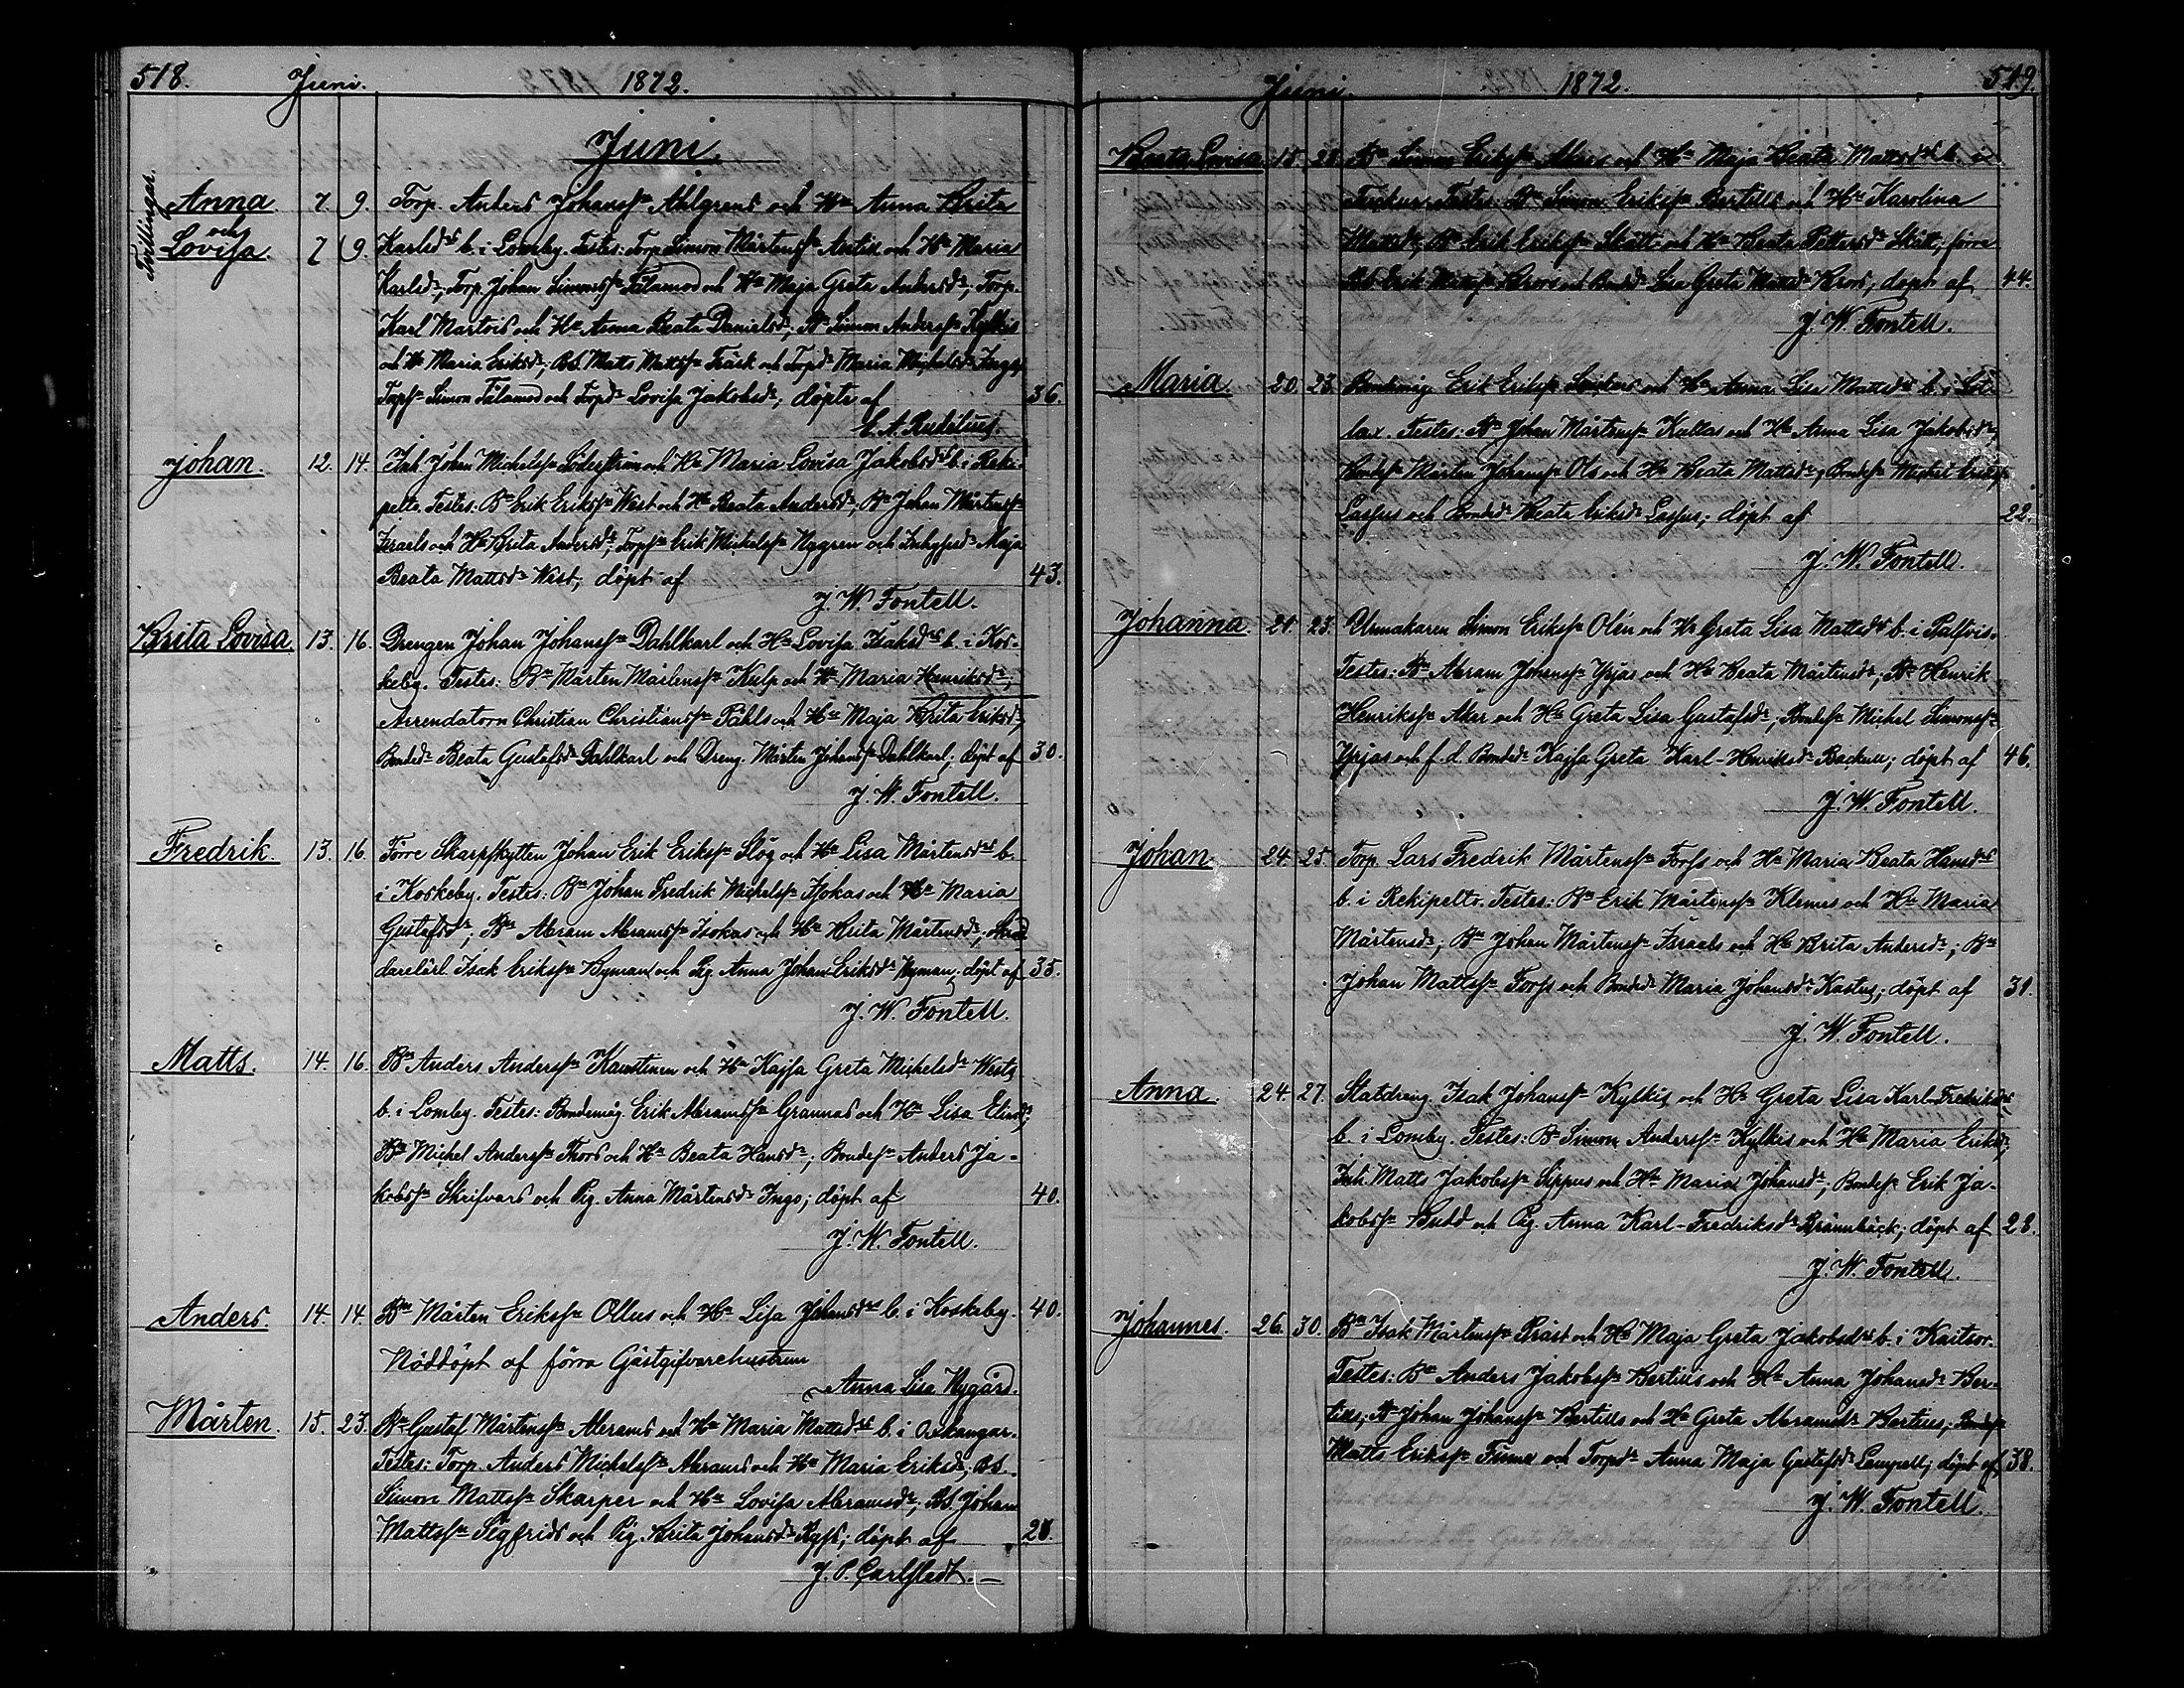 518. Juni. 1872.
Juni.
Tvillingar.
Anna 7. 9. Torp. Anders Johansſn Ahlgrens och Hn Anna Brita
och
Loviſa. 7 9. Karlsdrs b. i Lomby. Testes: Torp. Simon Mårtensſn Antila och Hn Maria
Karlsdr; Torp. Johan Simonsſn Tålamod och Hn Maja Greta Andersdr; Torp.
Karl Martois och Hn Anna Beata Danielsdr; Bn Simon Andersſn Kylkis
och Hn Maria Eriksdr; Bd. Matts Mattsſn Träsk och Torpdr Maria Michelsdr Ingo;
Torpsn Simon Tålamod och Torpdr Loviſa Jakobsdr; döpte af 36.
E. A. Rudelius.
Johan. 12. 14. Inh. Johan Michelsſn Söderſtröm och Hn Maria Lovisa Jakobsdrs b. i Reki-
pelto. Testes: Bn Erik Eriksſn West och Hn Beata Andersdr; Bn Johan Mårtensſn
Israels och Hn Brita Andersdr; Torpſn Erik Michelsſn Nygren och Inhyſesdr Maja
Beata Mattsdr West; döpt af 43.
J. W. Fontell.
Brita Lovisa. 13. 16. Drengen Johan Johansſn Dahlkarl och Hn Loviſa Isaksdrs b. i Kos-
keby. Testes: Bn Mårten Mårtensſn Kulp och Hn Maria Henriksdr;
Arrendatorn Christian Christiansſn Påhls och Hn Maja Brita Eriksdr;
Bondedr Beata Gustafsdr Dahlkarl och Dreng. Mårten Johansſn Dahlkarl; döpt af 30.
J. W. Fontell.
Fredrik. 13. 16. Förre Skarpſkytten Johan Erik Eriksſn Slög och Hn Lisa Mårtensdrs b.
i Koskeby. Testes: Bn Johan Fredrik Michelsſn Isokas och Hn Maria
Gustafsdr; Bn Abram Abramsſn Isokas och Hn Brita Mårtensdr; Skräd-
darelärl. Isak Eriksſn Nyman och Pig. Anna Johan Eriksdr Nyman; döpt af 35.
J. W. Fontell.
Matts. 14. 16. Bn Anders Andersſn Kaustinen och Hn Kajſa Greta Michelsdr Wests
b. i Lomby. Testes: Bondemåg. Erik Abramsſn Grannas och Hn Lisa Eliasdr;
Bn Michel Andersſn Thors och Hn Beata Hansdr; Bondeſn Anders Ja-
kobsſn Skrifvars och Pig. Anna Mårtensdr Ingo; döpt af 40.
J. W. Fontell.
Anders. 14. 14. Bn Mårten Eriksſn Ollus och Hn Liſa Johansdrs b. i Koskeby. 40.
Nöddöpt af förra Gästgifvarehustrun
Anna Lisa Nygård.
Mårten. 15. 23. Bn Gustaf Mårtensſn Abrams och Hn Maria Mattsdrs b. i Oxkangar.
Testes: Torp. Anders Michelsſn Abrams och Hn Maria Eriksdr; Bd.
Simon Mattsſn Skarper och Hn Loviſa Abramsdr; Bd. Johan
Mattsſn Sigfrids och Pig. Brita Johansdr Ryſs; döpt af
J. P. Carlſtedt.
Juni. 1872. 519.
Beata Lovisa 15. 23. Bn Simon Eriksſn Akers och Hn Maja Beata Mattsdrs b. i
Tuckur. Testes: Bn Simon Eriksſn Bertills och Hn Karolina
Mattsdr; Bn Erik Eriksſn Skått och Hn Beata Pettersdr Skått; förre
Bd. Erik Mattsſn Krovs och Bondedr Lisa Greta Mattsdr Krovs; döpt af 44.
J. W. Fontell.
Maria 20. 23. Bondemåg Erik Eriksſn och Hn Anna Lisa Mattsdrs b. i Lot-
lax. Testes: Bn Johan Mårtensſn Kullas och Hn Anna Lisa Jakobsdr;
Bondeſn Mårten Johansſn Ols och Hn Beata Mattsdr; Bondeſn Michel Eriksſn
Laſsus och Bondedr Beata Eriksdr Laſsus; döpt af 22.
J. W. Fontell.
Johanna. 21. 23. Urmakaren Simon Eriksſn Olén och Hn Greta Lisa Mattsdrs b. i Palfvis.
Testes: Bn Abram Johansſn Ypjas och Hn Beata Mårtensdr; Bn Henrik
Henriksſn Åkar och Hn Greta Lisa Gustafsdr; Bondeſn Michel Simonsſn
Ypjas och f. d. Bondedr Kajſa Greta Karl-Henriksdr Backull; döpt af 46.
J. W. Fontell.
Johan. 24. 25. Torp. Lars Fredrik Mårtensſn Forſs och Hn Maria Beata Hansdrs
b. i Rekipelto. Testes: Bn Erik Mårtensſn Klemus och Hn Maria
Mårtensdr; Bn Johan Mårtensſn Israels och Hn Brita Andersdr; Bn
Johan Mattsſn Forſs och Bondedr Maria Johansdr Kastus; döpt af 31.
J. W. Fontell.
Anna. 24. 27. Statdreng. Isak Johansſn Kylkis och Hn Greta Lisa Karl-Fredriksdrs
b. i Lomby. Testes: Bn Simon Andersſn Kylkis och Hn Maria Eriksdr;
Inh. Matts Jakobsſn Sippus och Hn Maria Johansdr; Bondeſn Erik Ja-
kobsſn Budd och Pig. Anna Karl-Fredriksdr Brännbäck; döpt af 28.
J. W. Fontell.
Johannes. 26. 30. Bn Isak Mårtensſn Präst och Hn Maja Greta Jakobsdrs b. i Kaitsor.
Testes: Bn Anders Jakobsſn Bertills och Hn Anna Johansdr Ber-
tills; Bn Johan Johansſn Bertills och Hn Greta Abramsdr Bertills; Bondeſn
Matts Eriksſn Finne och Torpdr Anna Maja Gustafsdr Lampell; döpt af 38.
J. W. Fontell.